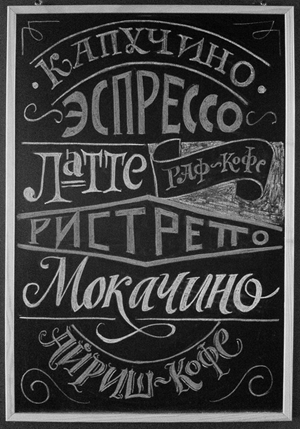 КАПУЧИНО
ЭСПРЕССО
ЛаТТЕ
РАФ-КОФЕ
РИСТРЕТТО
Мокачино
АЙРИШ-КОФЕ